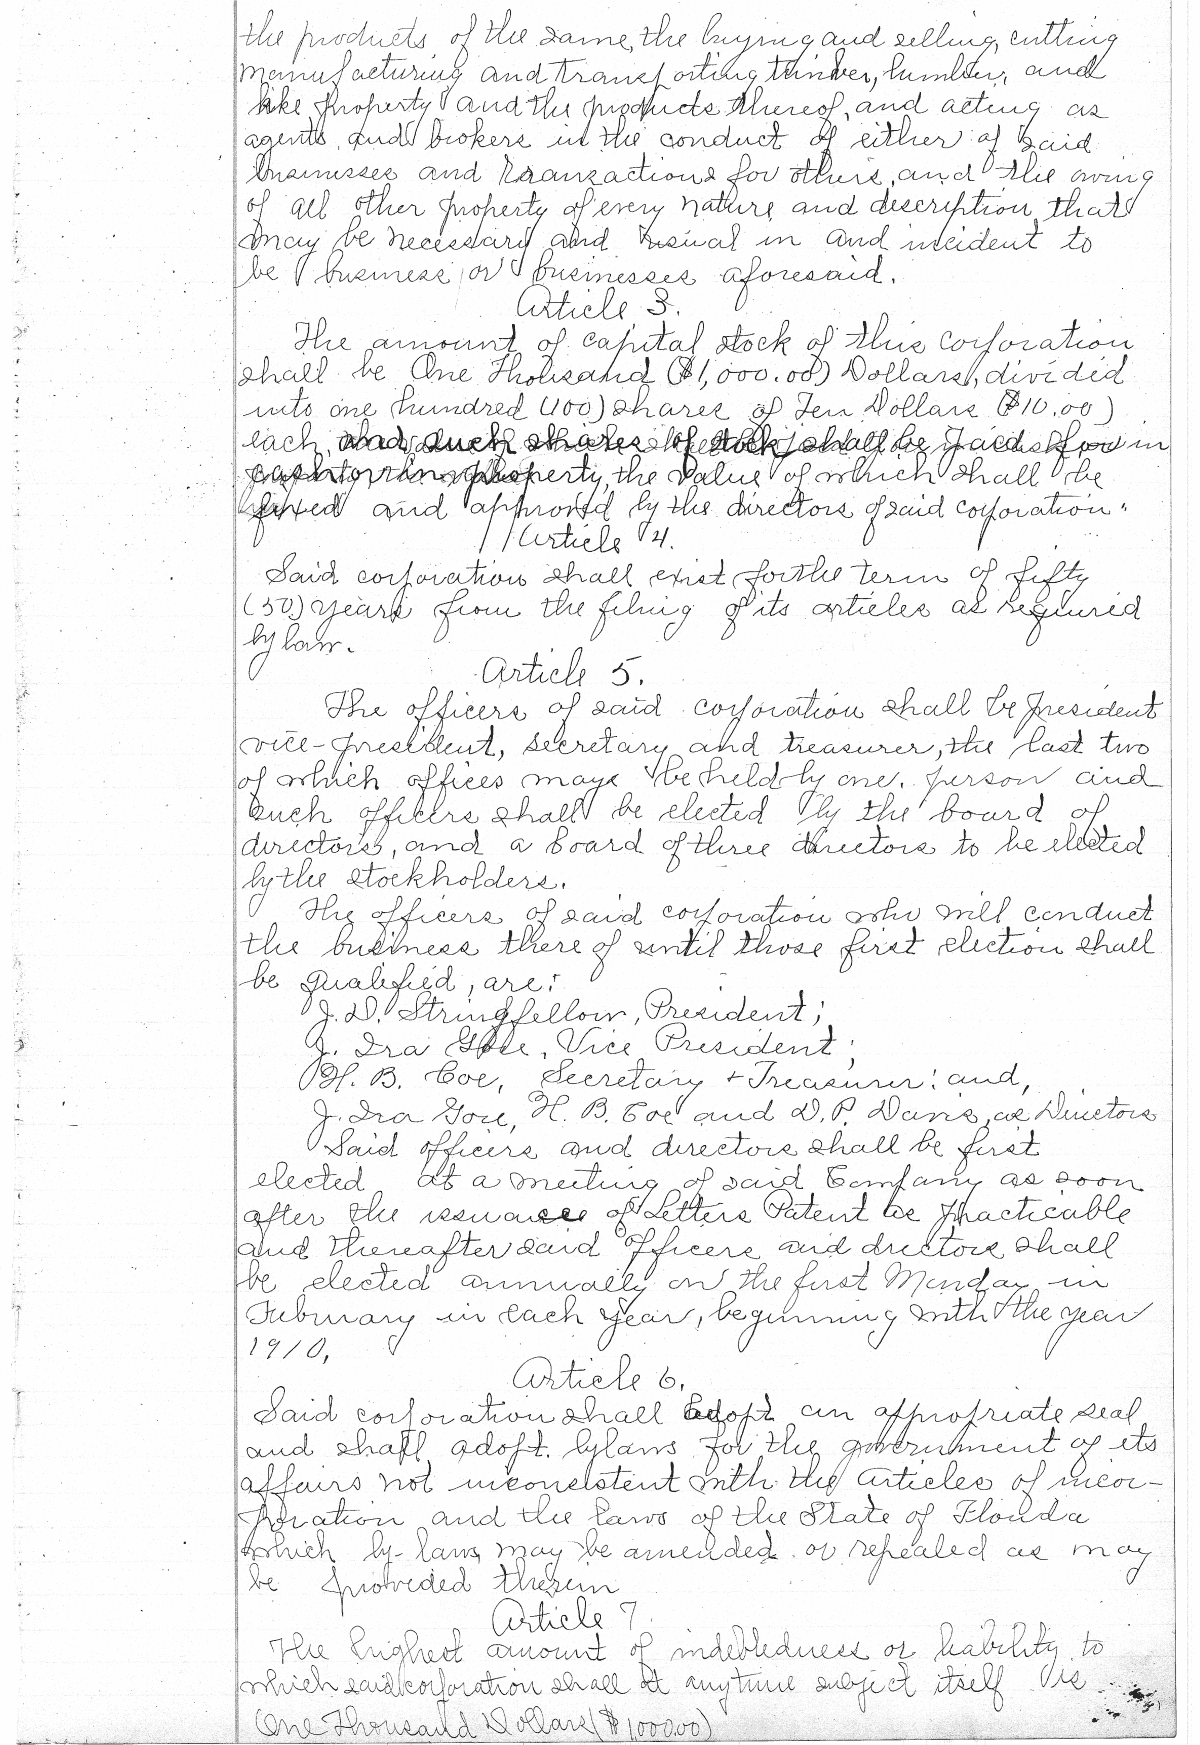 the products of the same, the buying and selling, cutting
manufacturing and transporting timber, lumber, and
like property and the products thereof, and acting as
agents and brokers in the conduct of either of said
businesses and transactions for others, and the owing
of all other property of every nature and description that
may be necessary and usual in and incident to
be business or businesses aforesaid.
Article 3.
The amount of capital stock of this corporation
shall be One Thousand ($1,000.00) Dollars, divided
into one hundred (100) shares of Ten Dollars ($10.00)
each, and such shares of stock shall be paid for in
cash or in property, the value of which shall be
fixed and approved by the directors of said corporation.
Article 4.
Said corporation shall exist for the term of fifty
(50) years from the filing of its articles as required
by law.
Article 5.
The officers of said corporation shall be president
vice-president, secretary and treasurer, the last two
of which offices may be held by one person and
such officers shall be elected by the board of
directors, and a board of three directors to be elected
by the stockholders.
The officers of said corporation who will conduct
the business there of until those first election shall
be qualified, are:
J. D. Stringfellow, President;
J. Ira Gore, Vice President;
H. B. Coe, Secretary + Treasurer; and,
J. Ira Gore, H. B. Coe and D. P. Davis, as Directors
Said officers and directors shall be first
elected at a meeting of said Company as soon
after the issuance of Letters Patent as practicable
and thereafter said officers and drectors shall
be elected annually on the first Monday in
February in each year, beginning with the year
1910.
Article 6.
Said corporation shall adopt an appropriate seal
and shall adopt bylaws for the government of its
affairs not inconsistent with the articles of incor-
poration and the laws of the State of Florida
which by-laws may be amended or repealed as may
be provided therein
Article 7.
The highest amount of indebtedness or liability to
which said corporation shall at anytime subject itself is
One Thousand Dollars ($1000.00)